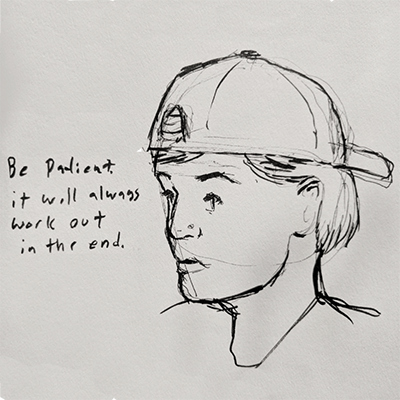 Be Patient.
it will always
work out
in the end.